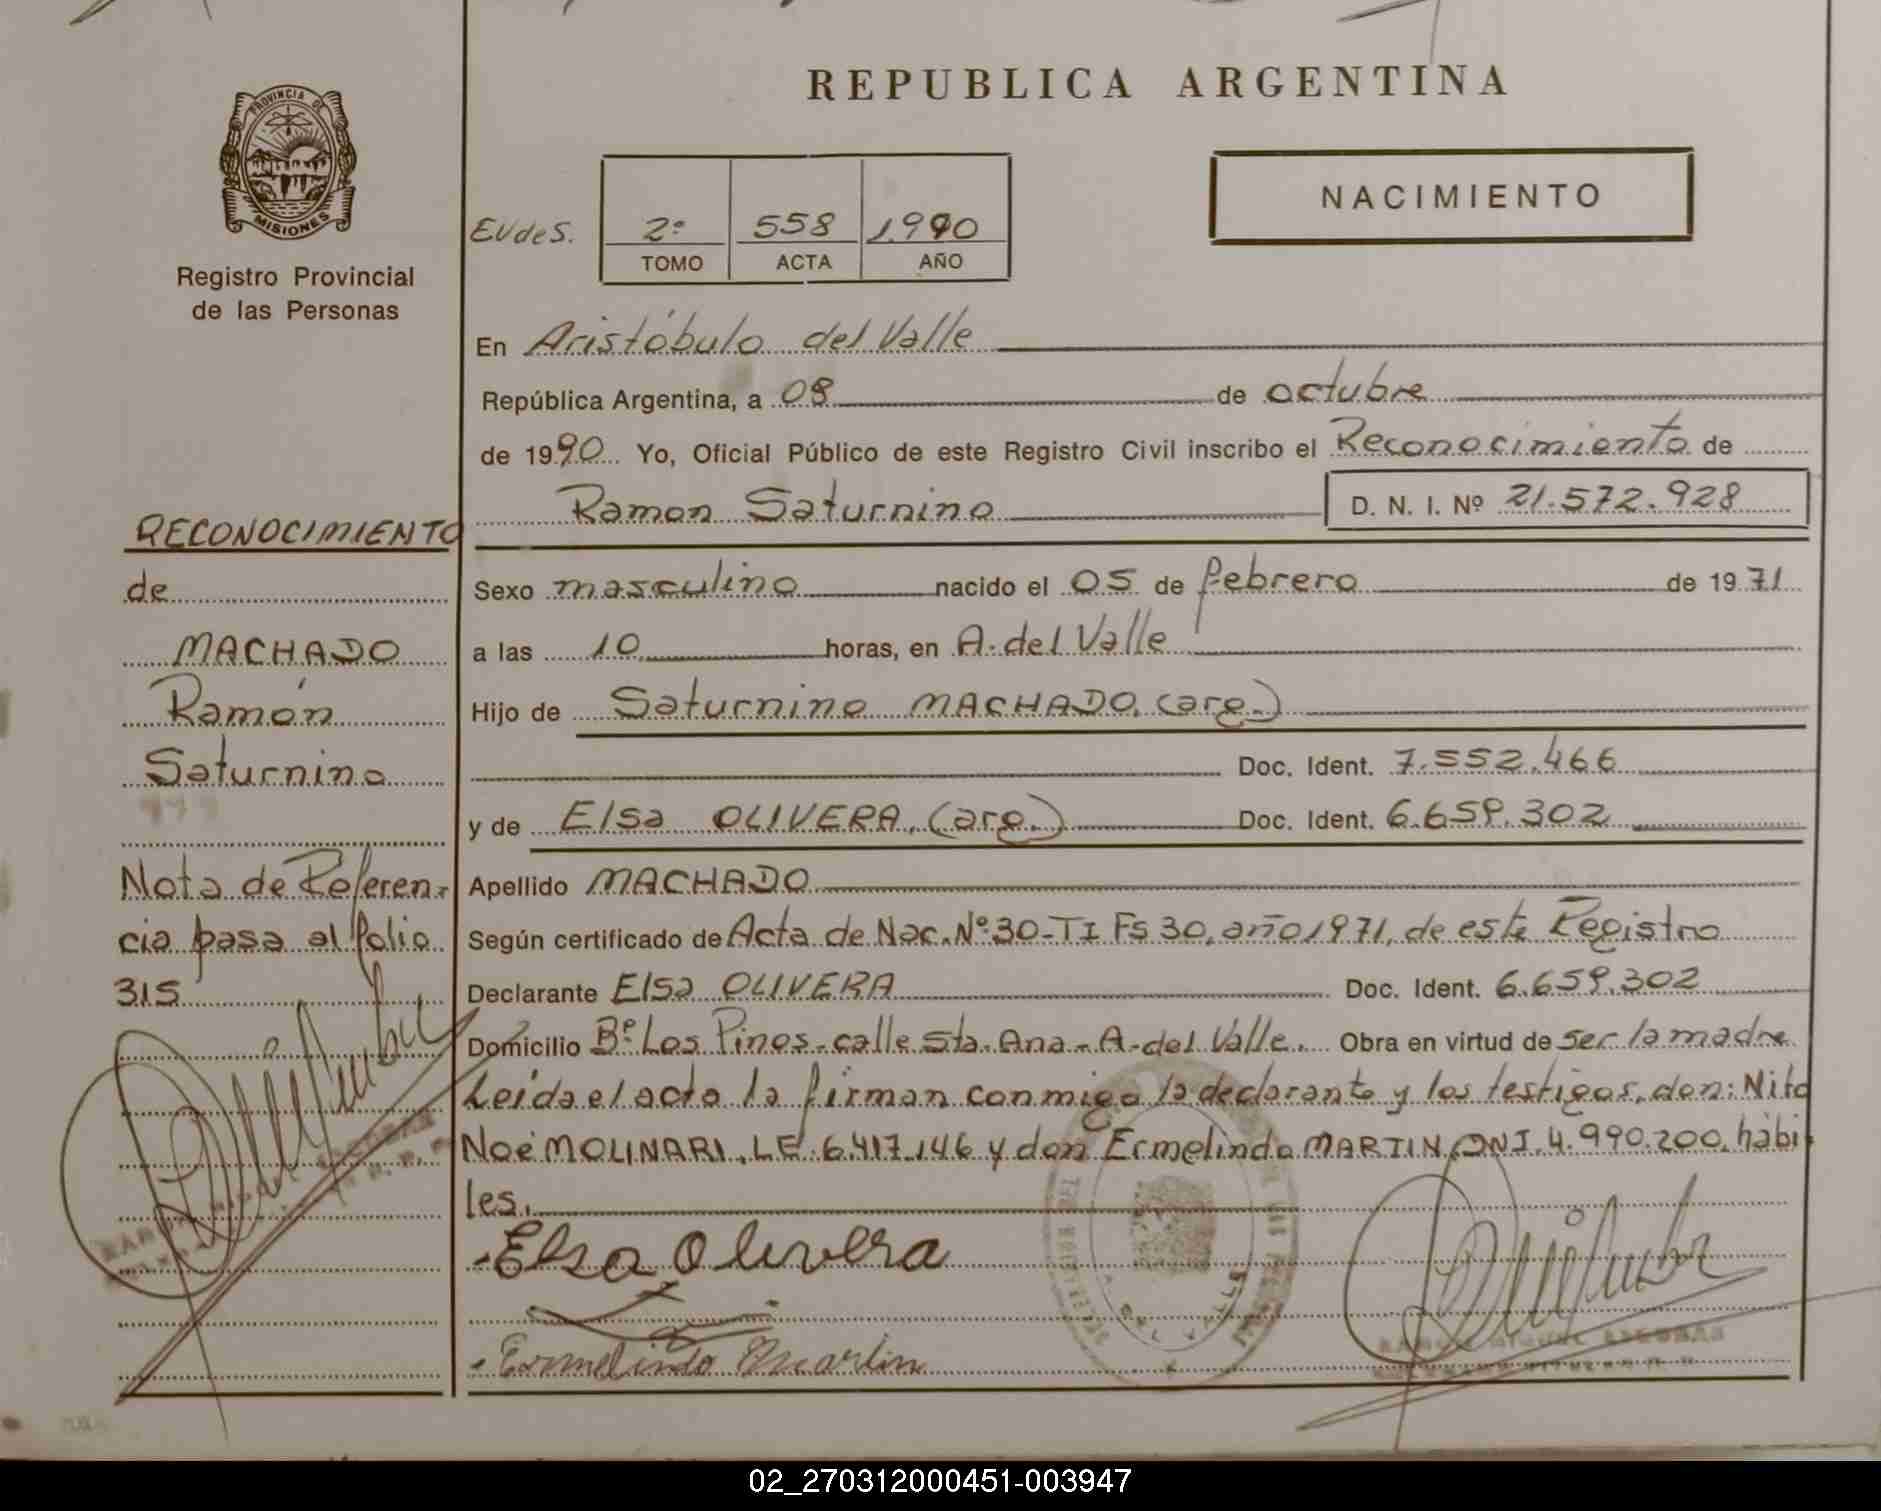 REPUBLICA ARGENTINA
PROVINCIA DE
MISIONES
Registro Provincial
de las Personas
NACIMIENTO
EVdeS.
2º 558 1.990
TOMO ACTA AÑO
En Aristóbulo del Valle
República Argentina, a 08 de octubre
de 1990 Yo, Oficial Público de este Registro Civil inscribo el Reconocimiento de
Ramon Saturnino D. N. I. Nº 21.572.928
Sexo masculino nacido el 05 de febrero de 1971
a las 10 horas, en A. del Valle
Hijo de Saturnino MACHADO, (arg.)
Doc. Ident. 7.552.466
y de Elsa OLIVERA, (arg.) Doc. Ident. 6.659.302
Apellido MACHADO
Según certificado de Acta de Nac. Nº 30-TI Fs 30, año 1971, de este Registro
Declarante Elsa OLIVERA Doc. Ident. 6.659.302
Domicilio Bº Los Pinos-calle Sta. Ana-A-del Valle. Obra en virtud de ser la madre
Leída el acta la firman conmigo la declarante y los testigos, don: Nito
Noé MOLINARI, LE 6.417.146 y don Ermelindo MARTIN, DNI. 4.990.200, hábi-
les.
Elsa Olivera
Ermelindo Martin
RECONOCIMIENTO
de
MACHADO
Ramón
Saturnino
Nota de Referen-
cia pasa al folio
315
02_270312000451-003947